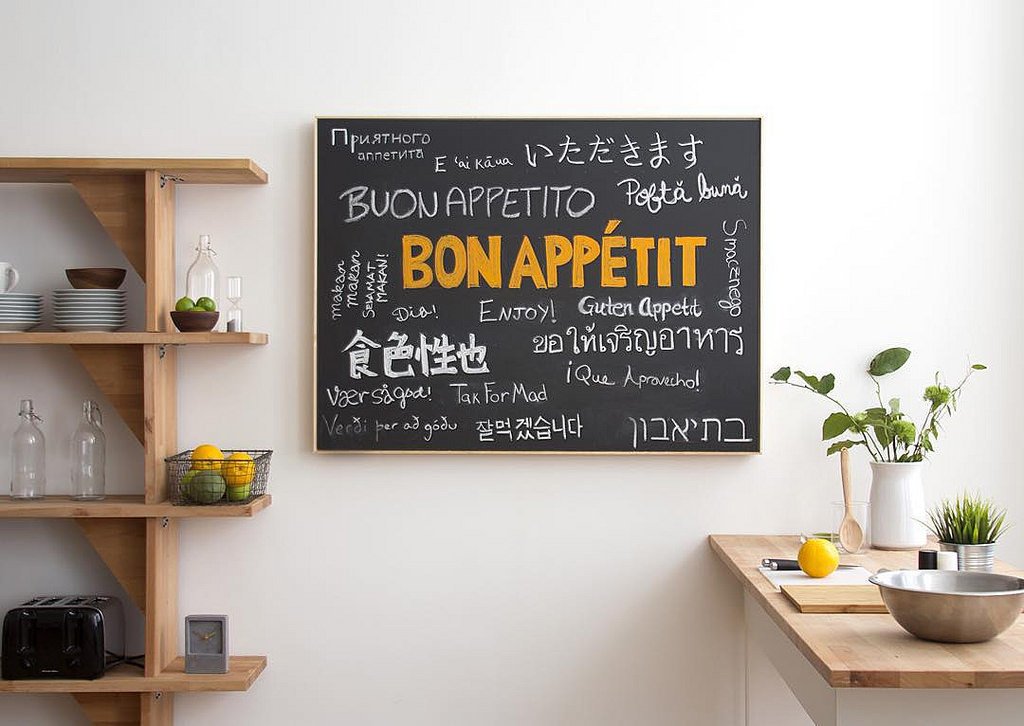 Приятного
аппетита
E 'ai kāua
いただきます
BUON APPETITO
Poftă bună
BON APPÉTIT
Smacznego
makan
makan
SELAMAT
MAKAN!
Dig!
ENJOY!
Guten Appetit
食色性也
ขอให้เจริญอาหาร
¡Que Aprovecho!
Vær så god!
Tak For Mad
Verði þér að góðu
잘먹겠습니다
בתיאבון